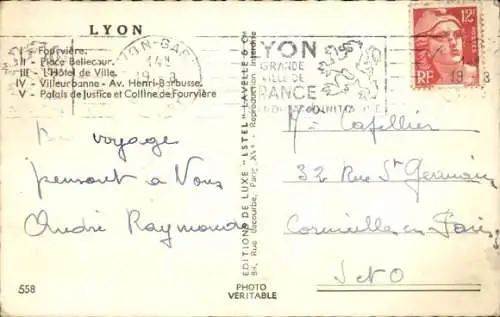 LYON
I - Fourvière.
II - Place Bellecour.
III - L'Hôtel de Ville.
IV - Villeurbanne - Av. Henri-Barbusse.
V - Palais de Justice et Colline de Fourvière
LYON-GARE
14H
19
LYON
GRANDE
VILLE DE
FRANCE
12F
RF
19
voyage
pensant à Vous
André Raymonde
EDITIONS DE LUXE "ESTEL" LAVELLE & Cie
Bd, Rue Lecourbe, Paris XVe - Reproduction Interdite
Cafellier
32 Rue St Germain
Cormeilles en Paris
S et O
558
PHOTO
VÉRITABLE